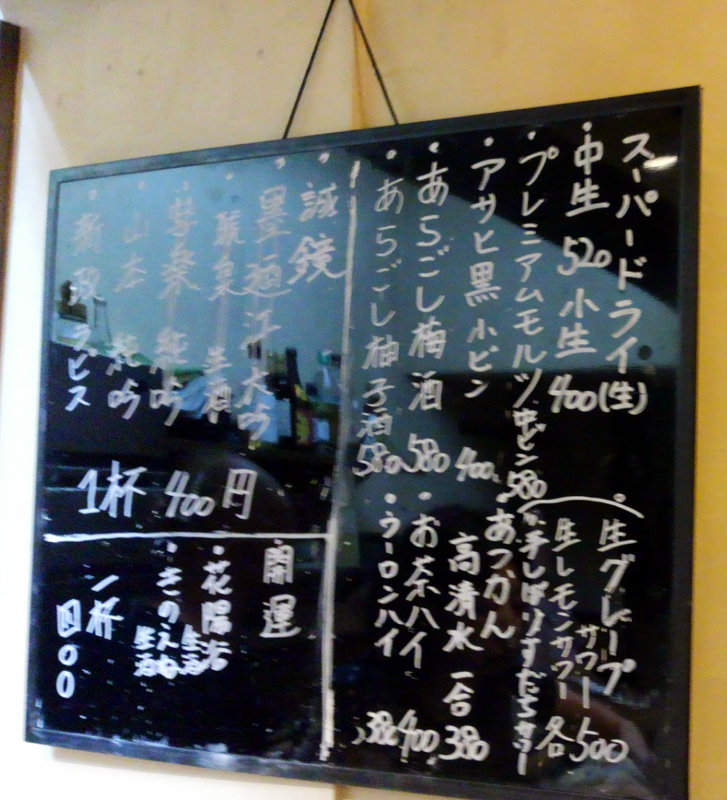 スーパードライ(生)
・中生 520 小生 400
・プレミアムモルツ 中ビン 580
・アサヒ黒 小ビン 400
・あらごし梅酒 580
・あらごし柚子酒 580
・生グレープサワー
生レモンサワー
手しぼりすだちサワー
各500
・あつかん
高清水 一合 380
・お茶ハイ 400
・ウーロンハイ 380
誠鏡
・墨廼江 大吟
・生酒
・純吟
・山本 純吟
・新政 ラピス
1杯 400円
開運
・花陽浴
・きのえね
一杯 四〇〇